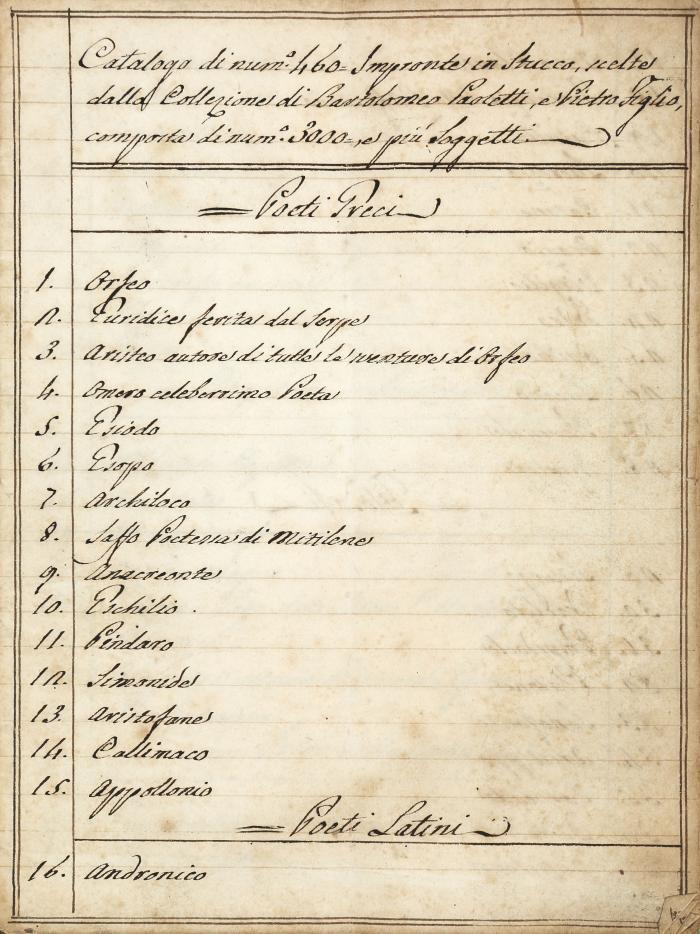 Catalogo di num.º 460= Impronte in Stucco, scelte
dalla Collezione di Bartolomeo Paoletti, e Pietro Figlio,
composta di num.º 3000=, e più Soggetti
= Poeti Greci
1. Orfeo
2. Euridice ferita dal Serpe
3. Aristeo autore di tutte le sventure di Orfeo
4. Omero celeberrimo Poeta
5. Esiodo
6. Esopo
7. Archiloco
8. Saffo Poetessa di Mitilene
9. Anacreonte
10. Eschilio .
11. Pindaro
12. Simonide
13. Aristofane
14. Callimaco
15. Appollonio
= Poeti Latini
16. Andronico